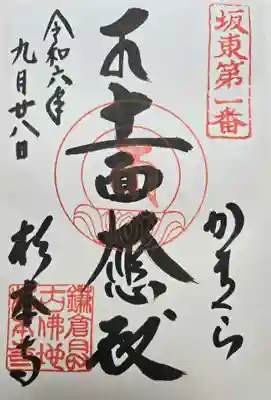 坂東第一番
かまくら
十一面大悲殿
令和六年
九月廿八日
杉本寺
鎌倉最
古佛地
杉本寺